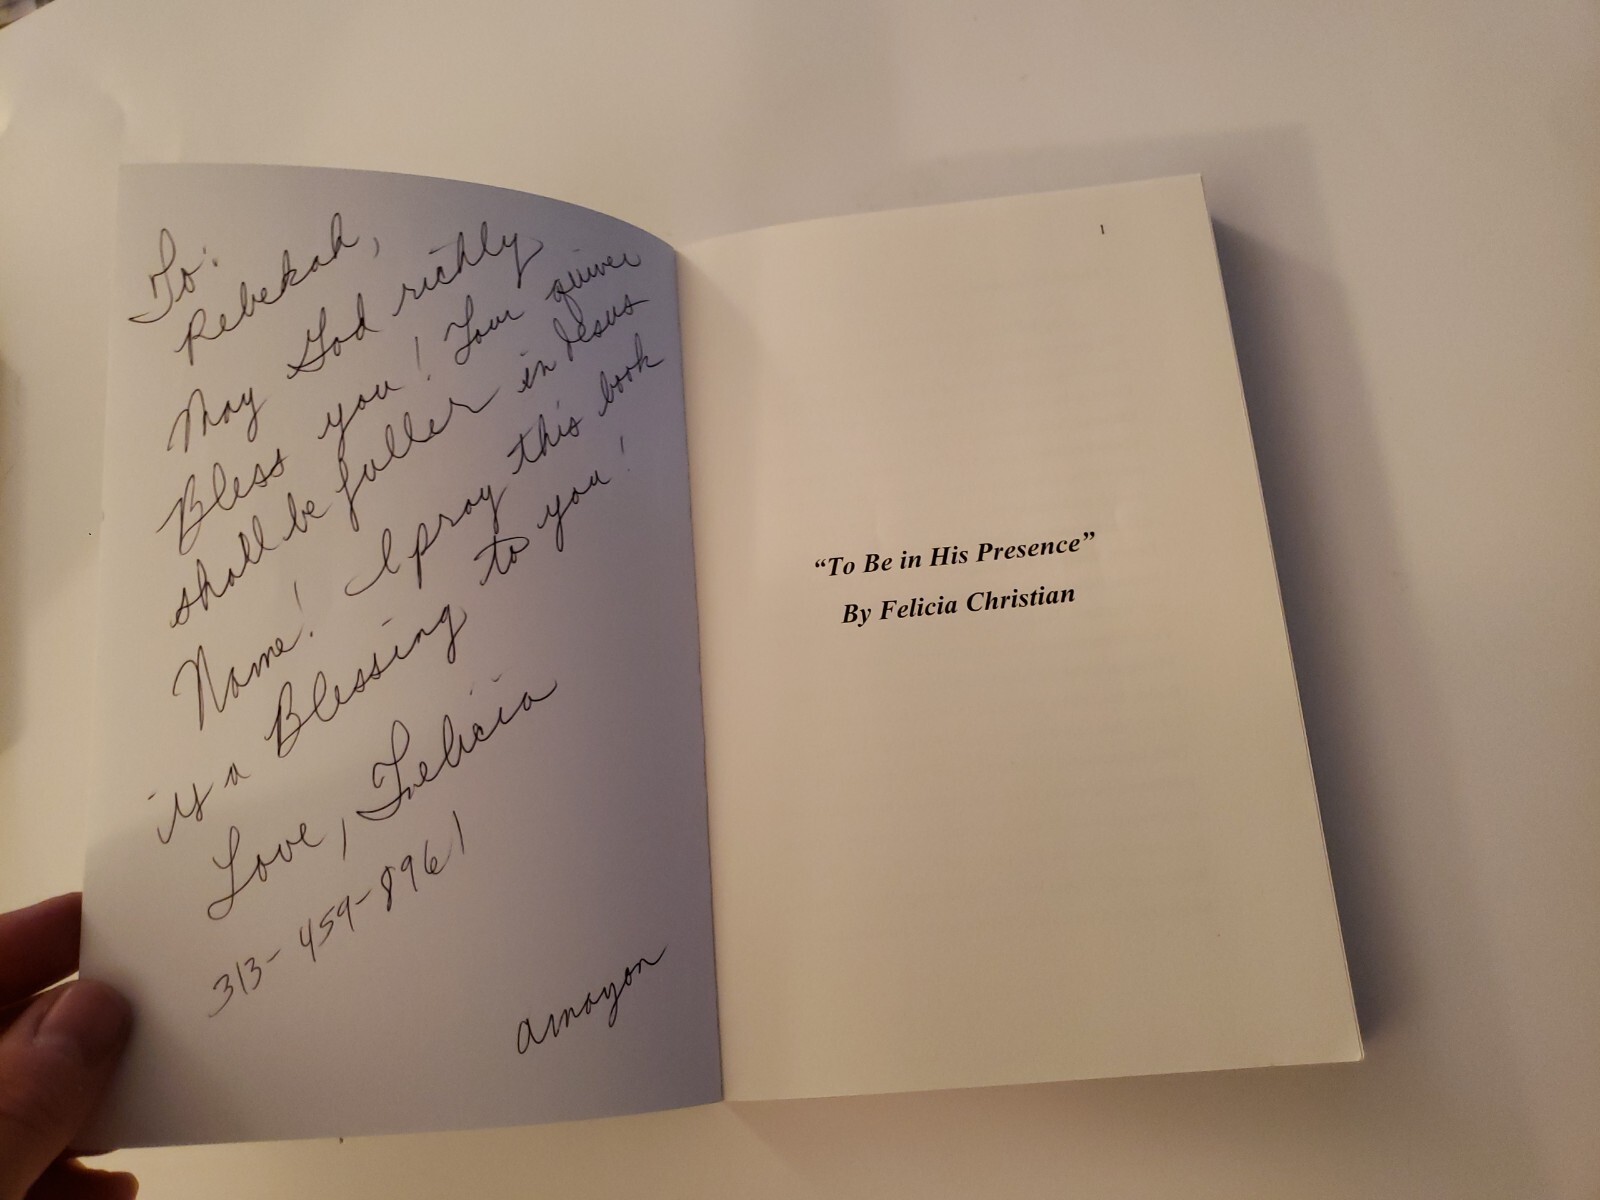 To:
Rebekah,
May God richly
Bless you! Your quiver
shall be fuller in Jesus
Name! I pray this book
is a Blessing to you!
Love, Felicia
313-459-8961
amayon
1
“To Be in His Presence”
By Felicia Christian